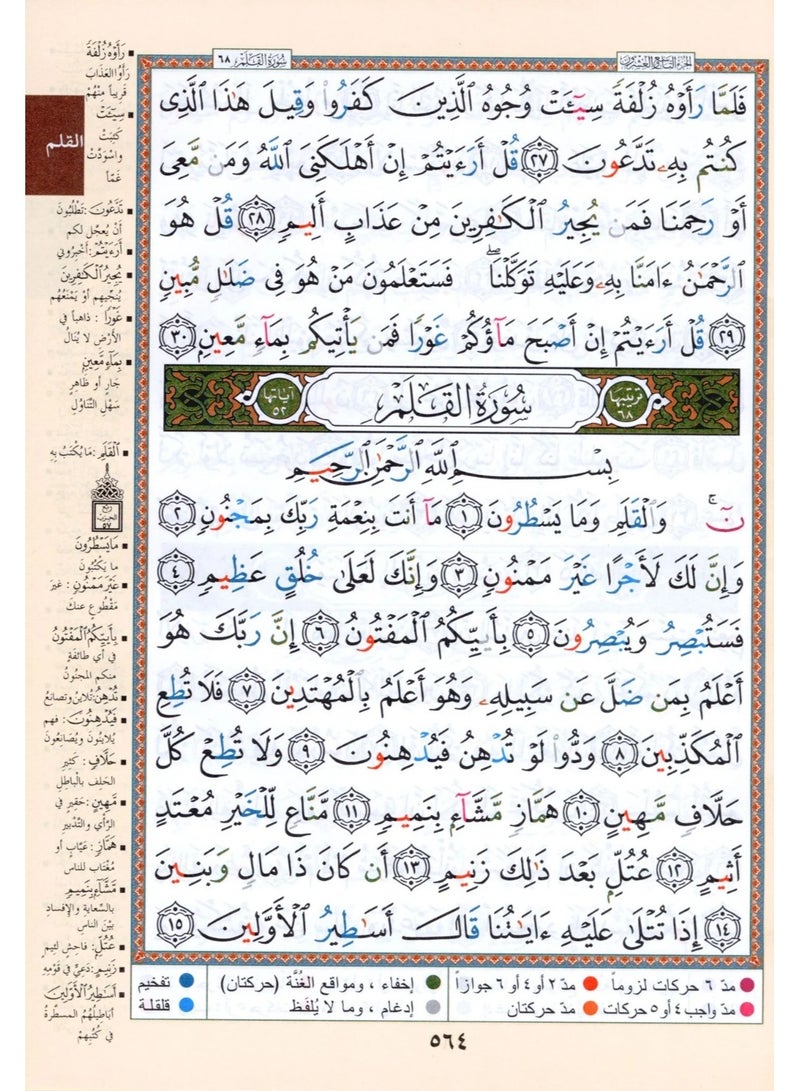 سُورَةُ القَلَم ٦٨
الجزء التاسع والعشرون
فَلَمَّا رَأَوْهُ زُلْفَةً سِيٓـَٔتْ وُجُوهُ ٱلَّذِينَ كَفَرُوا۟ وَقِيلَ هَٰذَا ٱلَّذِى
كُنتُم بِهِۦ تَدَّعُونَ ٢٧ قُلْ أَرَءَيْتُمْ إِنْ أَهْلَكَنِىَ ٱللَّهُ وَمَن مَّعِىَ
أَوْ رَحِمَنَا فَمَن يُجِيرُ ٱلْكَٰفِرِينَ مِنْ عَذَابٍ أَلِيمٍ ٢٨ قُلْ هُوَ
ٱلرَّحْمَٰنُ ءَامَنَّا بِهِۦ وَعَلَيْهِ تَوَكَّلْنَا ۖ فَسَتَعْلَمُونَ مَنْ هُوَ فِى ضَلَٰلٍ مُّبِينٍ
٢٩ قُلْ أَرَءَيْتُمْ إِنْ أَصْبَحَ مَآؤُكُمْ غَوْرًا فَمَن يَأْتِيكُم بِمَآءٍ مَّعِينٍ ٣٠
ترتيبها ٦٨
سُورَةُ القَلَمِ
آياتها ٥٢
بِسْمِ ٱللَّهِ ٱلرَّحْمَٰنِ ٱلرَّحِيمِ
نٓ ۚ وَٱلْقَلَمِ وَمَا يَسْطُرُونَ ١ مَآ أَنتَ بِنِعْمَةِ رَبِّكَ بِمَجْنُونٍ ٢
وَإِنَّ لَكَ لَأَجْرًا غَيْرَ مَمْنُونٍ ٣ وَإِنَّكَ لَعَلَىٰ خُلُقٍ عَظِيمٍ ٤
فَسَتُبْصِرُ وَيُبْصِرُونَ ٥ بِأَييِّكُمُ ٱلْمَفْتُونُ ٦ إِنَّ رَبَّكَ هُوَ
أَعْلَمُ بِمَن ضَلَّ عَن سَبِيلِهِۦ وَهُوَ أَعْلَمُ بِٱلْمُهْتَدِينَ ٧ فَلَا تُطِعِ
ٱلْمُكَذِّبِينَ ٨ وَدُّوا۟ لَوْ تُدْهِنُ فَيُدْهِنُونَ ٩ وَلَا تُطِعْ كُلَّ
حَلَّافٍ مَّهِينٍ ١٠ هَمَّازٍ مَّشَّآءٍۭ بِنَمِيمٍ ١١ مَّنَّاعٍ لِّلْخَيْرِ مُعْتَدٍ
أَثِيمٍ ١٢ عُتُلٍّۭ بَعْدَ ذَٰلِكَ زَنِيمٍ ١٣ أَن كَانَ ذَا مَالٍ وَبَنِينَ
١٤ إِذَا تُتْلَىٰ عَلَيْهِ ءَايَٰتُنَا قَالَ أَسَٰطِيرُ ٱلْأَوَّلِينَ ١٥
القلم
رَأَوْهُ زُلْفَةً
رَأَوُا العَذَابَ
قريباً منهُمْ
سِيئَتْ
كَئِبَتْ
واسْوَدَّتْ
غَمّاً
تَدَّعُونَ: تَطْلُبُونَ
أنْ يُعجَّل لكم
أَرَءَيْتُمْ: أخْبِرُوني
يُجِيرُ ٱلْكَٰفِرِينَ
يُنَجِّيهم أوْ يَمْنَعُهُم
غَوْرًا: ذاهباً في
الأرْضِ لا يُنَالُ
بِمَآءٍ مَّعِينٍ
جَارٍ أو ظاهِرٍ
سَهْلِ التَّنَاوُلِ
ٱلْقَلَمِ: مَا يُكْتَبُ بِهِ
ربع الحزب ٥٧
مَا يَسْطُرُونَ
ما يَكْتُبُون
غَيْرَ مَمْنُونٍ: غيرَ
مَقْطُوعٍ عنكَ
بِأَييِّكُمُ ٱلْمَفْتُونُ
في أي طائفةٍ
منكم المجنُونُ
تُدْهِنُ: تُلاينُ وتُصانعُ
فَيُدْهِنُونَ: فهم
يُلاينُونَ ويُصَانعُونَ
حَلَّافٍ: كَثيرِ
الحَلفِ بالْباطِلِ
مَّهِينٍ: حَقِيرٍ في
الرَّأي والتَّدْبِير
هَمَّازٍ: عَيَّابٍ أو
مُغْتَابٍ للناسِ
مَّشَّآءٍ بِنَمِيمٍ
بالسِّعايةِ والإفسادِ
بيْنَ الناسِ
عُتُلٍّ: فاحِشٍ لئيمٍ
زَنِيمٍ: دَعِيٍّ في قَوْمِهِ
أَسَٰطِيرُ ٱلْأَوَّلِينَ
أبَاطيلُهُمُ المسطرةُ
في كُتُبِهِمْ
مدّ ٦ حركات لزوماً
مدّ ٢ أو ٤ أو ٦ جوازاً
إخفاء ، ومواقع الغُنَّة (حركتان)
تفخيم
مدّ واجب ٤ أو ٥ حركات
مدّ حركتان
إدغام ، وما لا يُلفَظ
قلقلة
٥٦٤